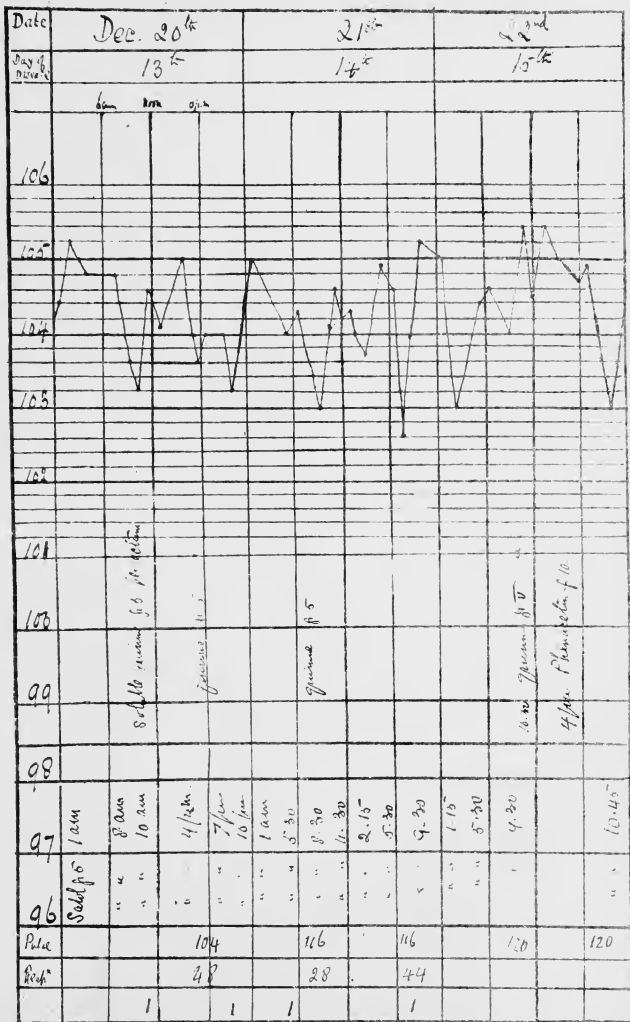 Date Dec. 20th 21st 22nd
Day of Disease 13th 14th 15th
6am Noon 6p.m
106
105
104
103
102
101
100
99
98
97
96
Soluble quinine gr 5 per rectum
quinine gr 5
quinine gr 5
10.30 quinine gr V
4 pm Phenacetin gr 10
1 am 8 am 10 am 4 p.m. 7 pm 10 pm 1 am 5.30 8.30 11.30 2.15 5.30 9.30 1.15 5.30 9.30 10.45
Salol gr 5 " " " " " " " " " " " " " " " " " " " " " "
Pulse 104 116 116 120 120
Resp 48 28 44
1 1 1 1